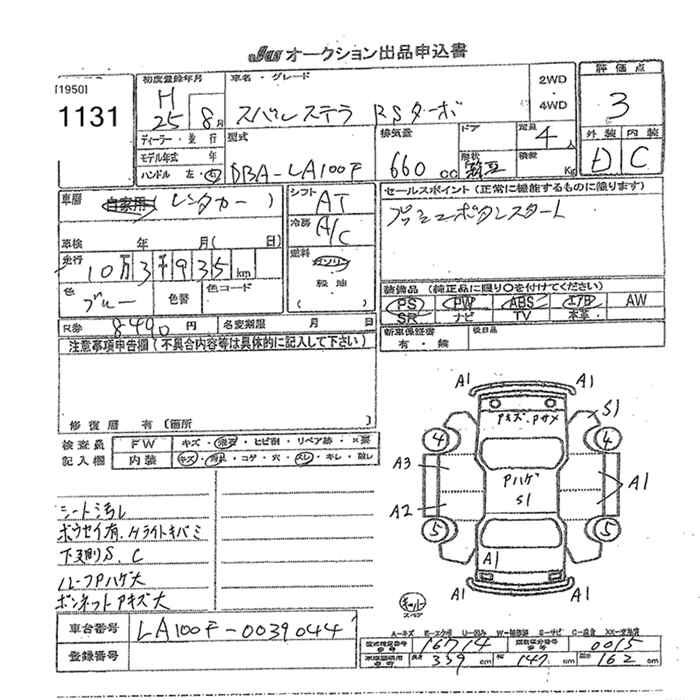 JBA オークション出品申込書
[1950]
1131
初度登録年月
H
25 8 月
ディーラー・並行
モデル年式 年
ハンドル 左・右
車名・グレード
スバルステラ RSターボ
2WD
4WD
型式
DBA-LA100F
排気量
660 cc
ドア
形状
定員
4 人
積載 Kg
評価点
3
外装 内装
D C
車歴
自家用 (レンタカー)
車検 年 月( 日)
走行
10万3千935 km
色
ブルー
色替
色コード
R券 8490 円
名変期限 月 日
シフト
AT
冷房
A/C
燃料
ガソリン
軽油
( )
セールスポイント(正常に機能するものに限ります)
プッシュボタンスタート
装備品(純正品に限り○を付けてください)
PS PW ABS エアB AW
SR ナビ TV 本革
新車保証書
有・無
後日品
注意事項申告欄(不具合内容等は具体的に記入して下さい)
修復歴 有(箇所 )
検査員
記入欄
FW キズ・飛石・ヒビ割・リペア跡・X要
内装 キズ・汚れ・コゲ・穴・スレ・キレ・臭い
シート汚レ
ボウセイ有.Hライトキバミ
下廻りS.C
ルーフPハゲ大
ボンネットPキズ大
A1 A1
Pキズ.Pサメ
S1
4 4
A3
A2
Pハゲ
S1
A1
5 5
A1
A1 A1
車台番号 LA100F-0039044
登録番号
A=キズ E=エクボ U=凹み W=補修跡 S=サビ C=腐食 XX=交換済
型式指定番号 16714 類別区分番号 0015
長さ 339 cm 幅 147 cm 高さ 162 cm